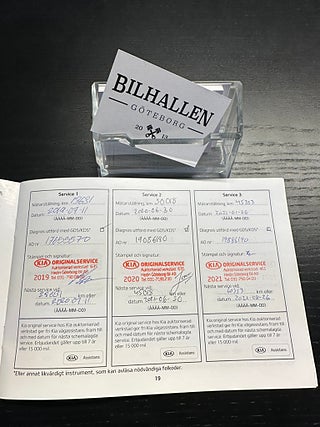 BILHALLEN
GÖTEBORG
20 13
Service 1
Mätarställning, km
Datum 2019-09-11
(ÅÅÅÅ-MM-DD)
Diagnos utförd med GDS/KDS*
AO nr
Stämpel och signatur:
KIA ORIGINALSERVICE
2019
Nästa service vid:
km eller
datum
(ÅÅÅÅ-MM-DD)
Kia original service hos Kia auktoriserad
verkstad ger fri Kia vägassistans fram till
och med datum för nästa schemalagda
service. Erbjudandet gäller upp till 7 år
eller 15 000 mil.
KIA Assistans
Service 2
Mätarställning, km 30018
Datum 2020-06-30
(ÅÅÅÅ-MM-DD)
Diagnos utförd med GDS/KDS*
AO nr 1908690
Stämpel och signatur:
KIA ORIGINALSERVICE
2020
Nästa service vid:
45018 km eller
datum
(ÅÅÅÅ-MM-DD)
Kia original service hos Kia auktoriserad
verkstad ger fri Kia vägassistans fram till
och med datum för nästa schemalagda
service. Erbjudandet gäller upp till 7 år
eller 15 000 mil.
KIA Assistans
Service 3
Mätarställning, km 45203
Datum
(ÅÅÅÅ-MM-DD)
Diagnos utförd med GDS/KDS*
AO nr
Stämpel och signatur:
KIA ORIGINALSERVICE
2021
Nästa service vid:
km eller
datum
(ÅÅÅÅ-MM-DD)
Kia original service hos Kia auktoriserad
verkstad ger fri Kia vägassistans fram till
och med datum för nästa schemalagda
service. Erbjudandet gäller upp till 7 år
eller 15 000 mil.
KIA Assistans
*Eller annat likvärdigt instrument, som kan avläsa nödvändiga felkoder.
19